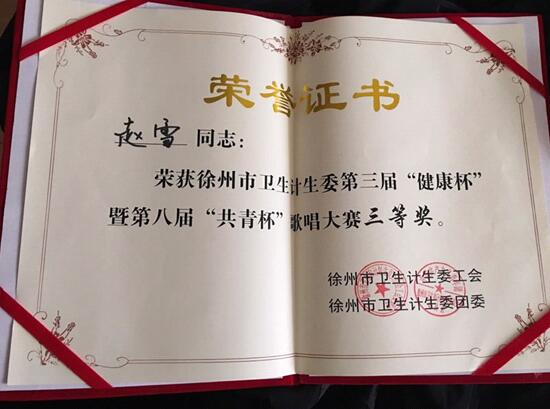 荣誉证书
赵雪 同志：
荣获徐州市卫生计生委第三届“健康杯”
暨第八届“共青杯”歌唱大赛三等奖。
徐州市卫生计生委工会
徐州市卫生计生委团委